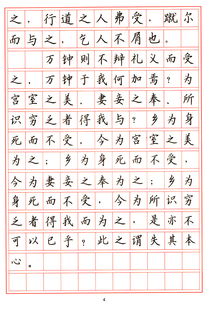 之，行道之人弗受，蹴尔
而与之，乞人不屑也。
万钟则不辩礼义而受
之，万钟于我何加焉？为
宫室之美，妻妾之奉，所
识穷乏者得我与？乡为身
死而不受，今为宫室之美
为之；乡为身死而不受，
今为妻妾之奉为之；乡为
身死而不受，今为所识穷
乏者得我而为之，是亦不
可以已乎？此之谓失其本
心。
4